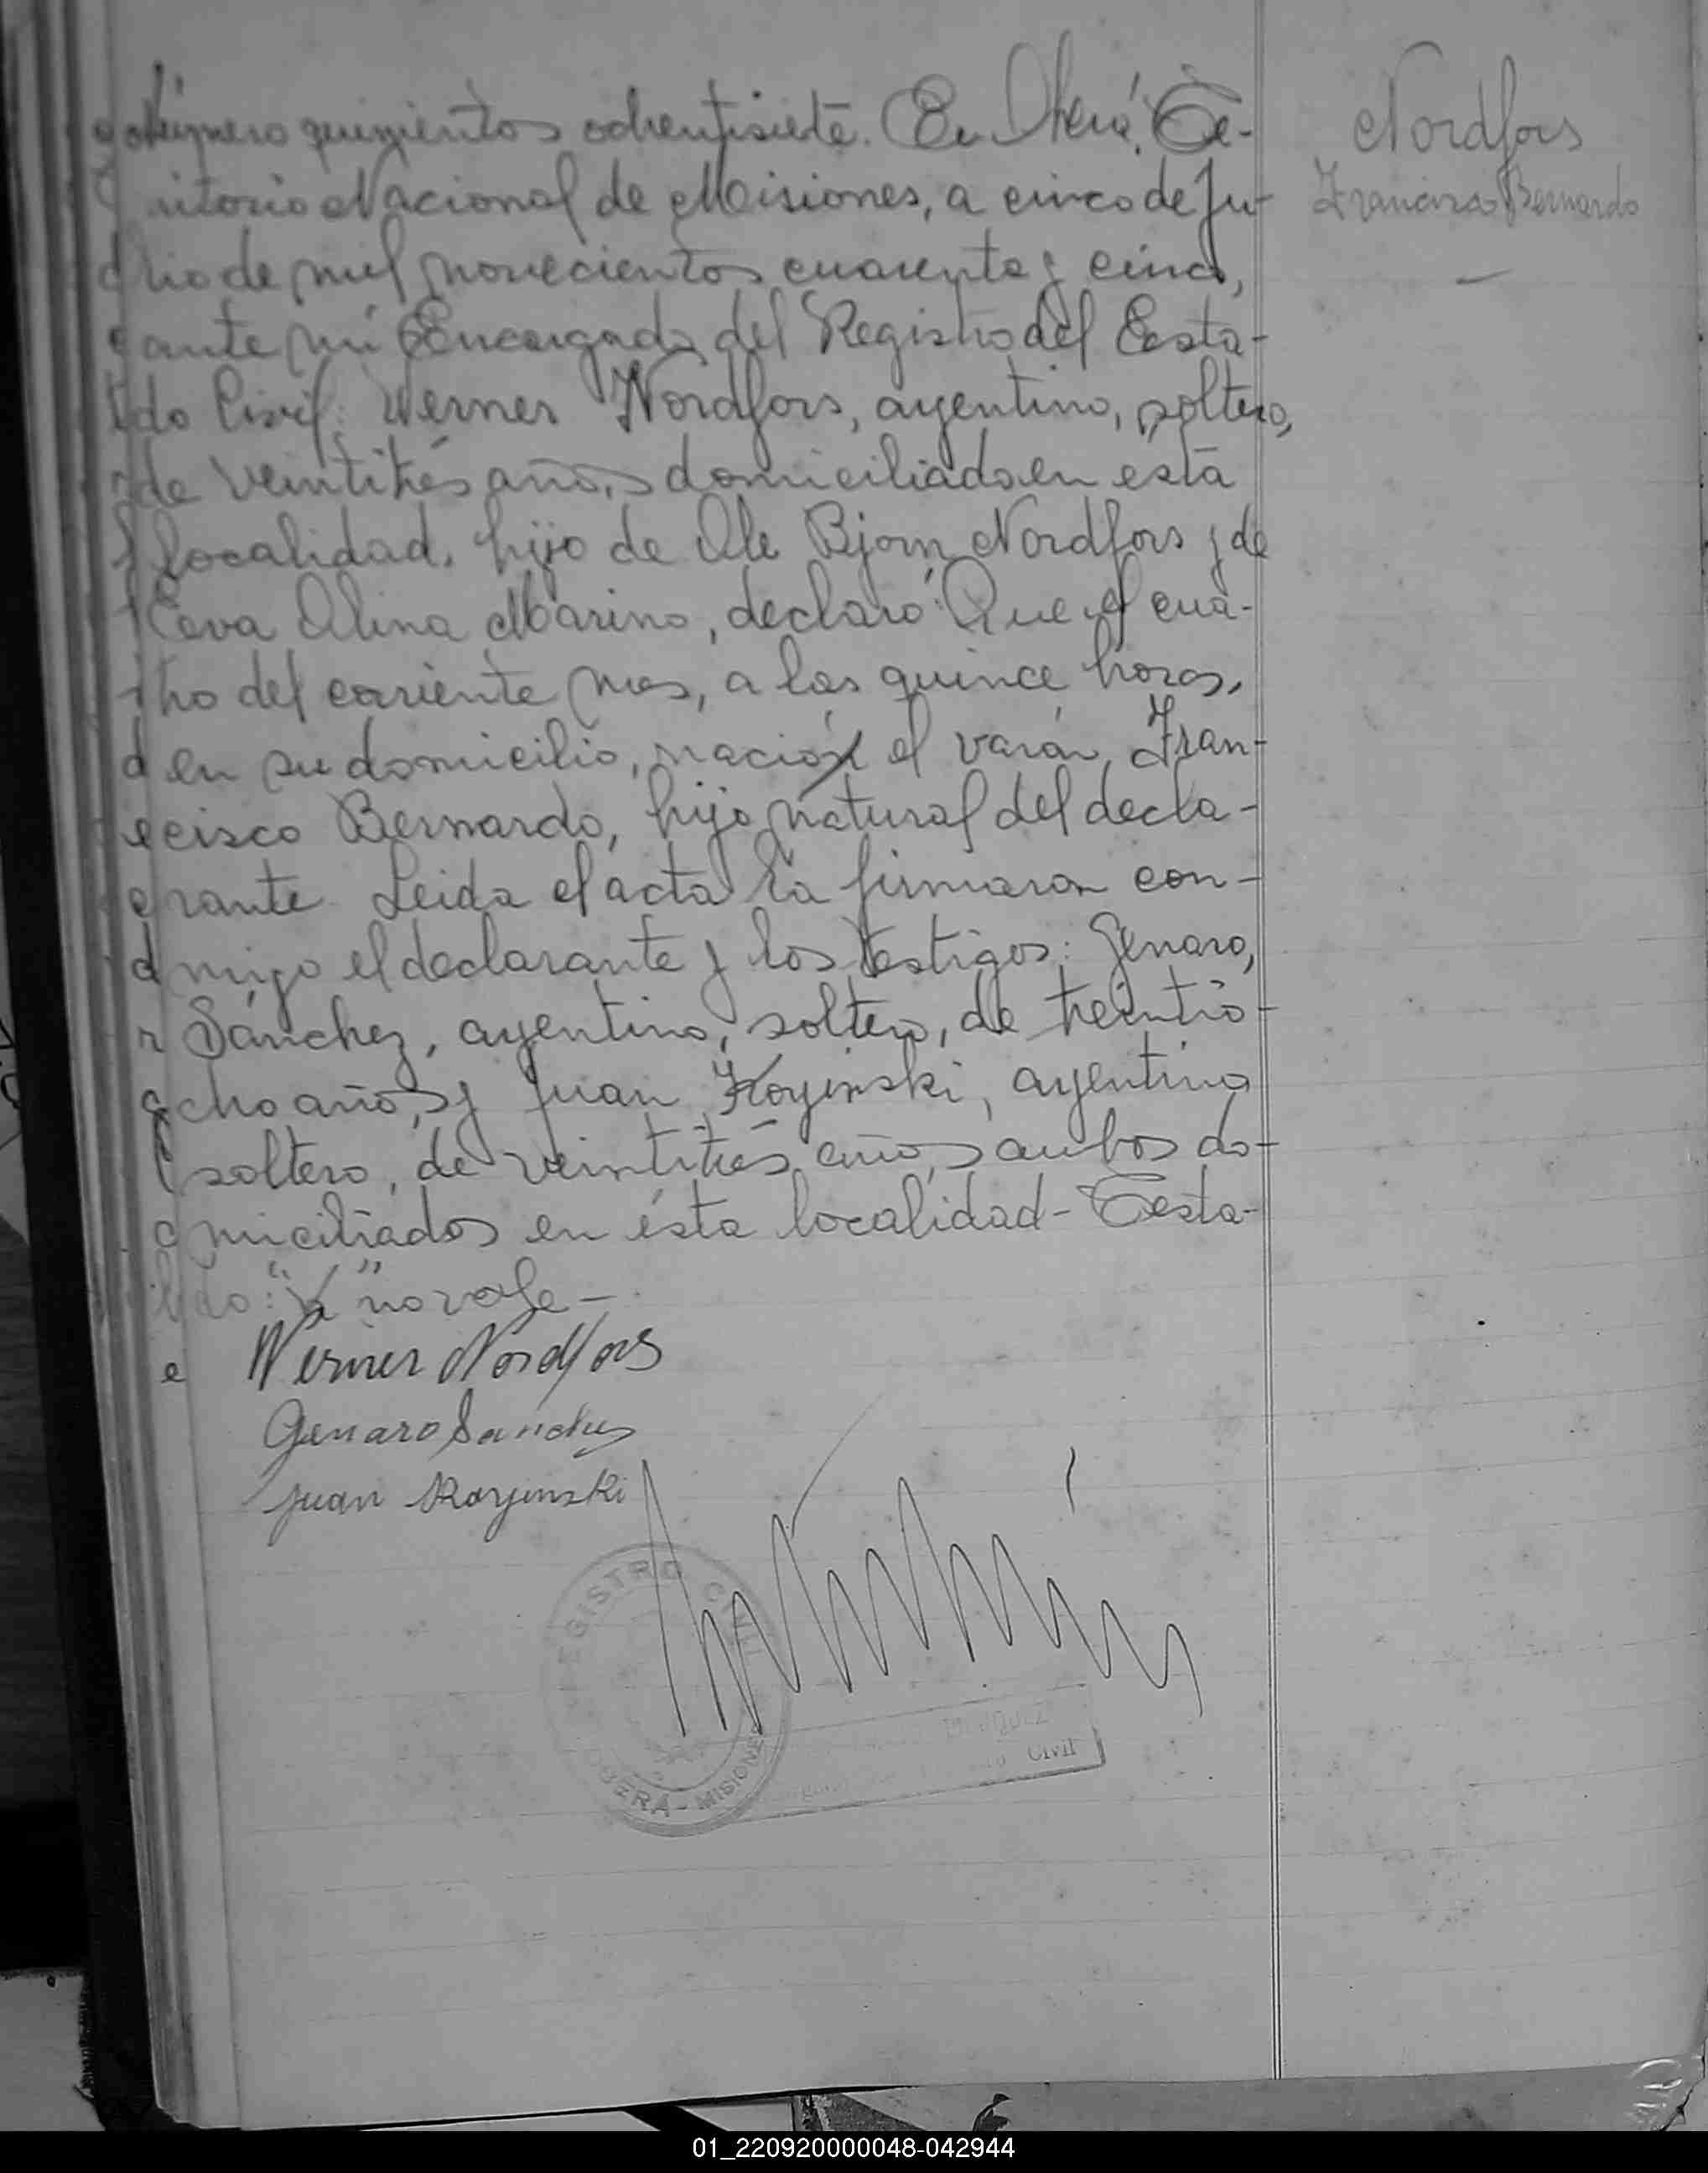 Número quinientos ochentisiete. En Oberá, Te-
rritorio Nacional de Misiones, a cinco de Ju-
lio de mil novecientos cuarenta y cinco,
ante mí Encargado del Registro del Esta-
do Civil: Werner Nordfors, argentino, soltero,
de veintitrés años, domiciliado en ésta
localidad, hijo de Ole Bjorn Nordfors y de
Eva Alina Marino, declaró: Que el cua-
tro del corriente mes, a las quince horas,
en su domicilio, nació el varón, Fran-
cisco Bernardo, hijo natural del decla-
rante. Leida el acta la firmaron con-
migo el declarante y los testigos: Genaro,
Sánchez, argentino, soltero, de treintio-
cho años, y Juan Koyinski, argentino
soltero, de veintitrés años, ambos do-
miciliados en ésta localidad - Testa-
do: no vale -
Werner Nordfors
Genaro Sanchez
Juan
REGISTRO CIVIL
OBERÁ - MISIONES
Civil
Nordfors
Francisco Bernardo
01_220920000048-042944